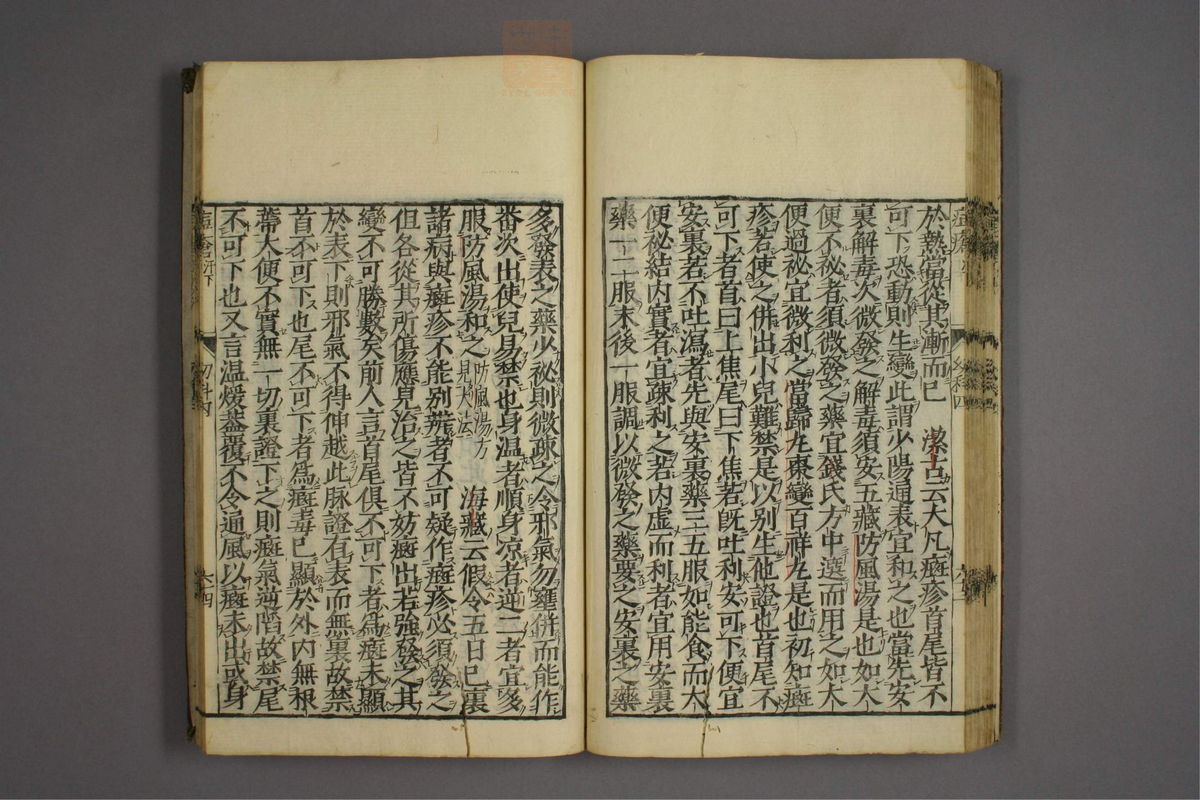 於熱當從其漸而已　潔古云大凡癍疹首尾皆不
可下恐動則生變此謂少陽通表宜和之也當先安
裏解毒次微發之解毒須安五藏防風湯是也如大
便不秘者須微發之藥宜錢氏方中選而用之如大
便過秘宜微利之當歸丸棗變百祥丸是也初知癍
疹若使之併出小兒難禁是以別生他證也首尾不
可下者首曰上焦尾曰下焦若既吐利安可下便宜
安裏若不吐瀉者先與安裏藥三五服如能食而大
便秘結内實者宜疎利之若内虚而利者宜用安裏
藥一二服末後一服調以微發之藥要之安裏之藥
多發表之藥少秘則微疎之令邪氣勿壅併而能作
番次出使兒易禁也身温者順身凉者逆二者宜多
服防風湯和之防風湯方
見大法　海藏云假令五日已裏
諸病與癍疹不能別辨者不可疑作癍疹必須發之
但各從其所傷應見治之皆不妨癍出若強發之其
變不可勝數矣前人言首尾俱不可下者爲癍未顯
於表下則邪氣不得伸越此脉證有表而無裏故禁
首不可下也尾不可下者爲癍毒已顯於外内無根
蒂大便不實無一切裏證下之則癍氣逆陷故禁尾
不可下也又言温煖盖覆不令通風以癍未出或身
幼科四